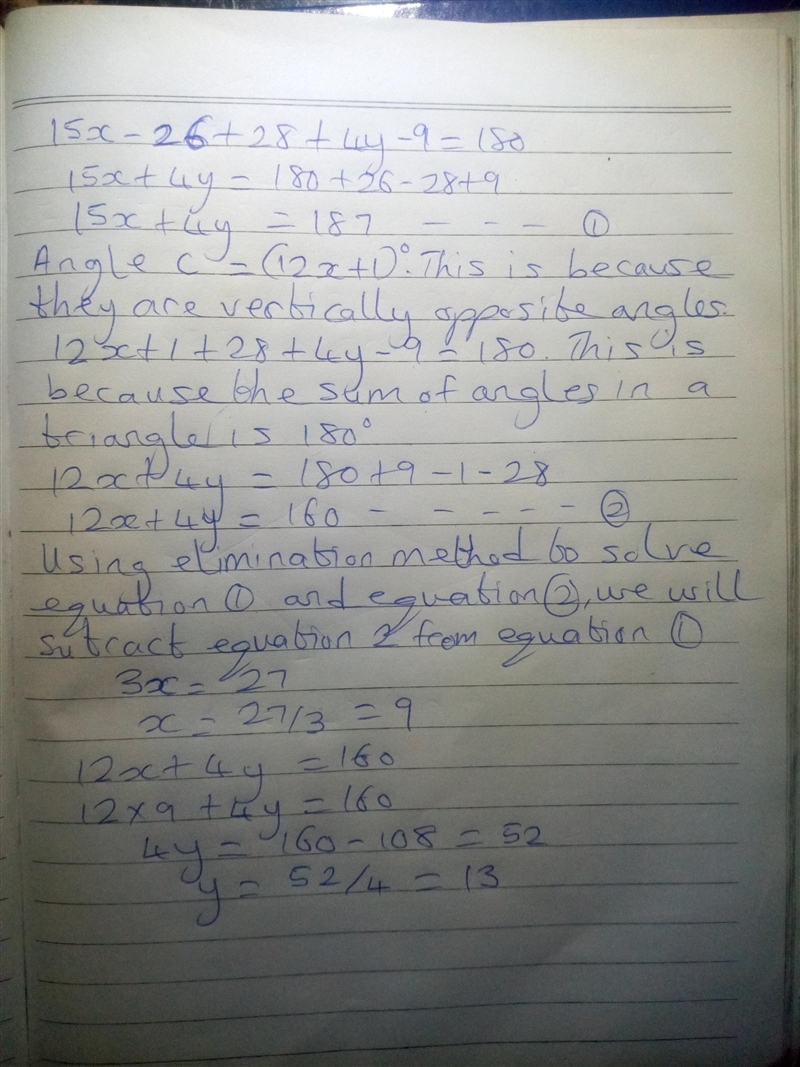 15x - 26 + 28 + 4y - 9 = 180
15x + 4y = 180 + 26 - 28 + 9
15x + 4y = 187 - - - ①
Angle C = (12x+1)°. This is because
they are vertically opposite angles.
12x + 1 + 28 + 4y - 9 = 180. This is
because the sum of angles in a
triangle is 180°
12x + 4y = 180 + 9 - 1 - 28
12x + 4y = 160 - - - - - ②
Using elimination method to solve
equation ① and equation ②, we will
sutract equation 2 from equation ①
3x = 27
x = 27/3 = 9
12x + 4y = 160
12 × 9 + 4y = 160
4y = 160 - 108 = 52
y = 52/4 = 13